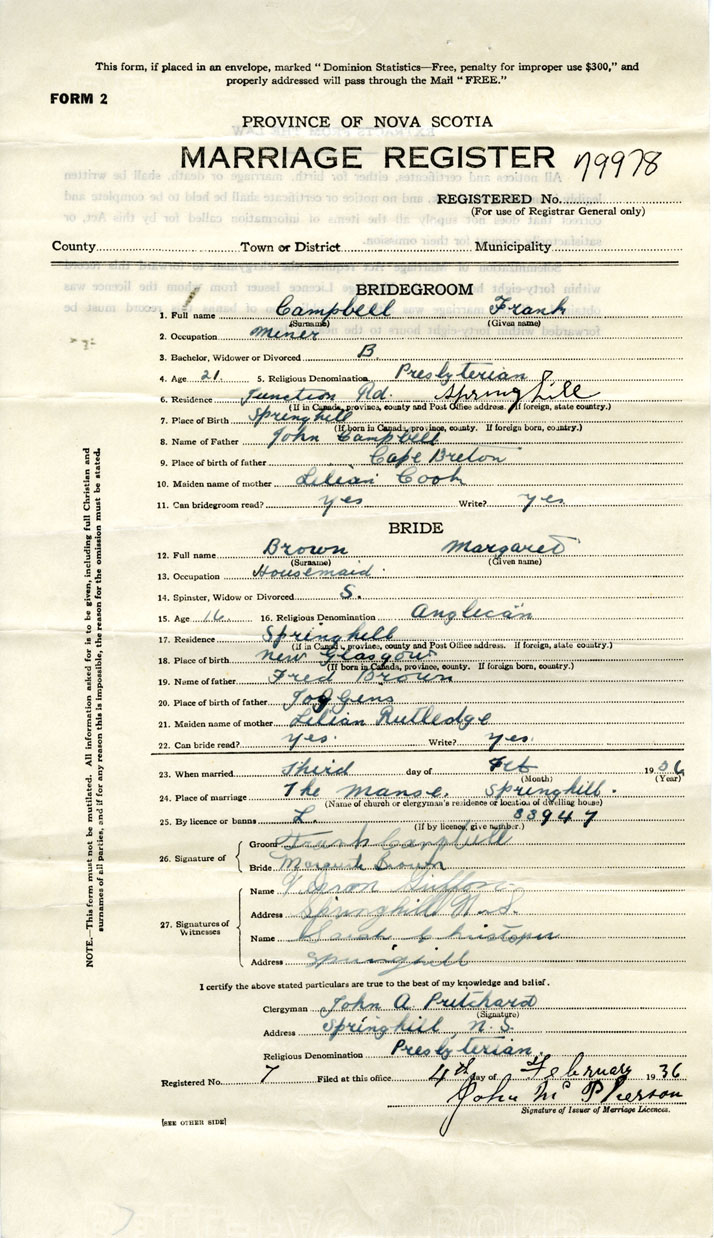 This form, if placed in an envelope, marked "Dominion Statistics—Free, penalty for improper use $300," and
properly addressed will pass through the Mail "FREE."
FORM 2
PROVINCE OF NOVA SCOTIA
MARRIAGE REGISTER 79978
REGISTERED No.
(For use of Registrar General only)
County Town or District Municipality
BRIDEGROOM
1. Full name Campbell Frank
(Surname) (Given name)
2. Occupation Miner
3. Bachelor, Widower or Divorced B
4. Age 21. 5. Religious Denomination Presbyterian
6. Residence Junction Rd. Springhill
(If in Canada, province, county and Post Office address. If foreign, state country.)
7. Place of Birth Springhill
(If born in Canada, province, county. If foreign born, country.)
8. Name of Father John Campbell
9. Place of birth of father Cape Breton
10. Maiden name of mother Lilian Cook
11. Can bridegroom read? yes Write? yes
BRIDE
12. Full name Brown Margaret
(Surname) (Given name)
13. Occupation Housemaid
14. Spinster, Widow or Divorced S.
15. Age 16. 16. Religious Denomination Anglican
17. Residence Springhill
(If in Canada, province, county and Post Office address. If foreign, state country.)
18. Place of birth New Glasgow
(If born in Canada, province, county. If foreign born, country.)
19. Name of father Fred Brown
20. Place of birth of father Joggens
21. Maiden name of mother Lilian Rutledge
22. Can bride read? yes. Write? yes.
23. When married Third day of Feb 1936
(Month) (Year)
24. Place of marriage The Manse. Springhill.
(Name of church or clergyman's residence or location of dwelling house)
25. By licence or banns L. 33947
(If by licence, give number.)
26. Signature of
Groom Frank Campbell
Bride Margaret Brown
27. Signatures of Witnesses
Name
Address Springhill N.S.
Name Sarah
Address Springhill
I certify the above stated particulars are true to the best of my knowledge and belief.
Clergyman John A Pritchard
(Signature)
Address Springhill, N.S.
Religious Denomination Presbyterian
Registered No. 7 Filed at this office 4th day of February 1936
John McPherson
Signature of Issuer of Marriage Licences.
[SEE OTHER SIDE]
NOTE.—This form must not be mutilated. All information asked for is to be given, including full Christian and
surnames of all parties, and if for any reason this is impossible, the reason for the omission must be stated.